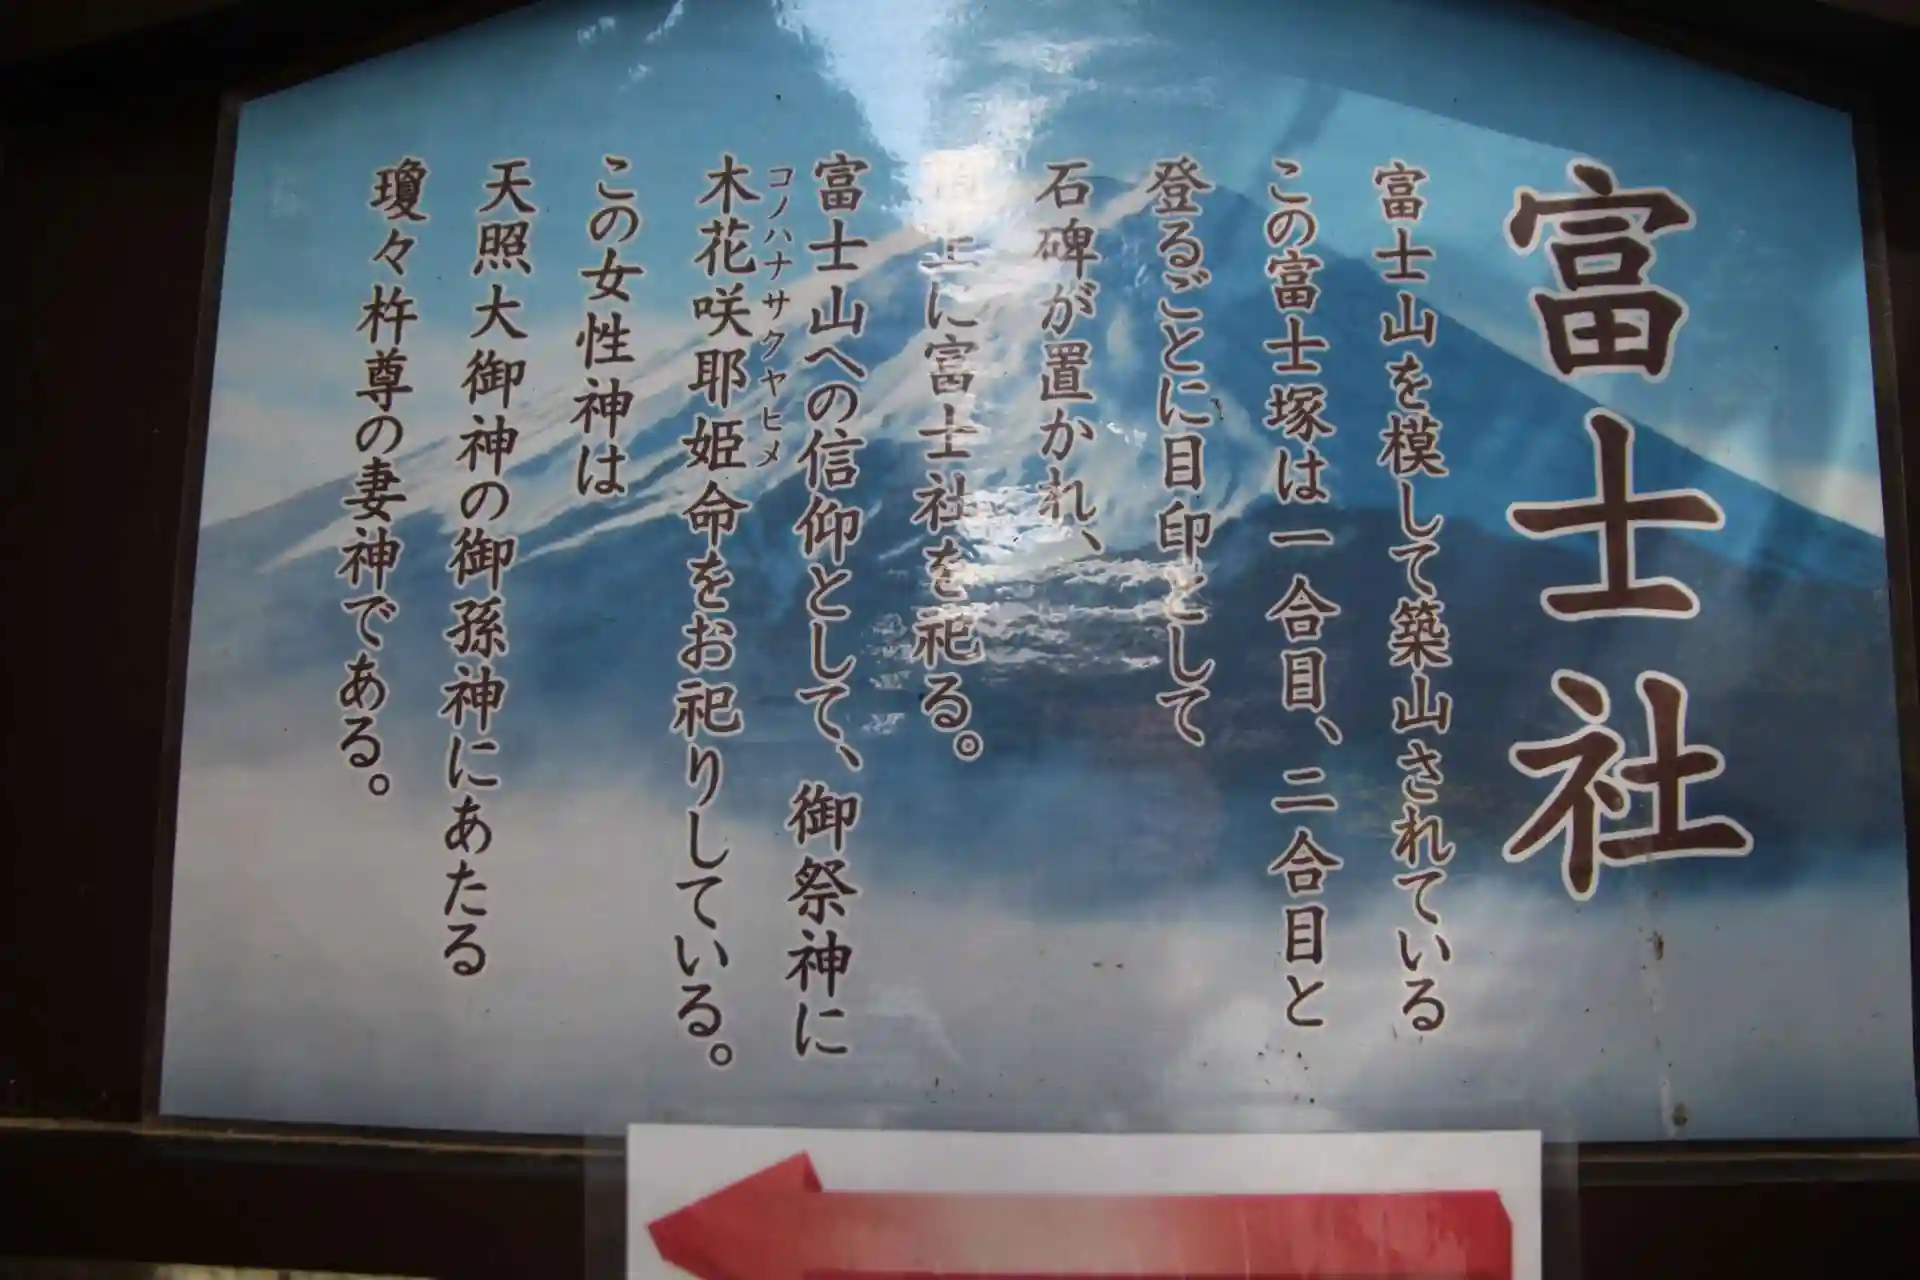 富士社
富士山を模して築山されている
この富士塚は一合目、二合目と
登るごとに目印として
石碑が置かれ、
上に富士社を祀る。
富士山への信仰として、御祭神に
コノハナサクヤヒメ
木花咲耶姫命をお祀りしている。
この女性神は
天照大御神の御孫神にあたる
瓊々杵尊の妻神である。